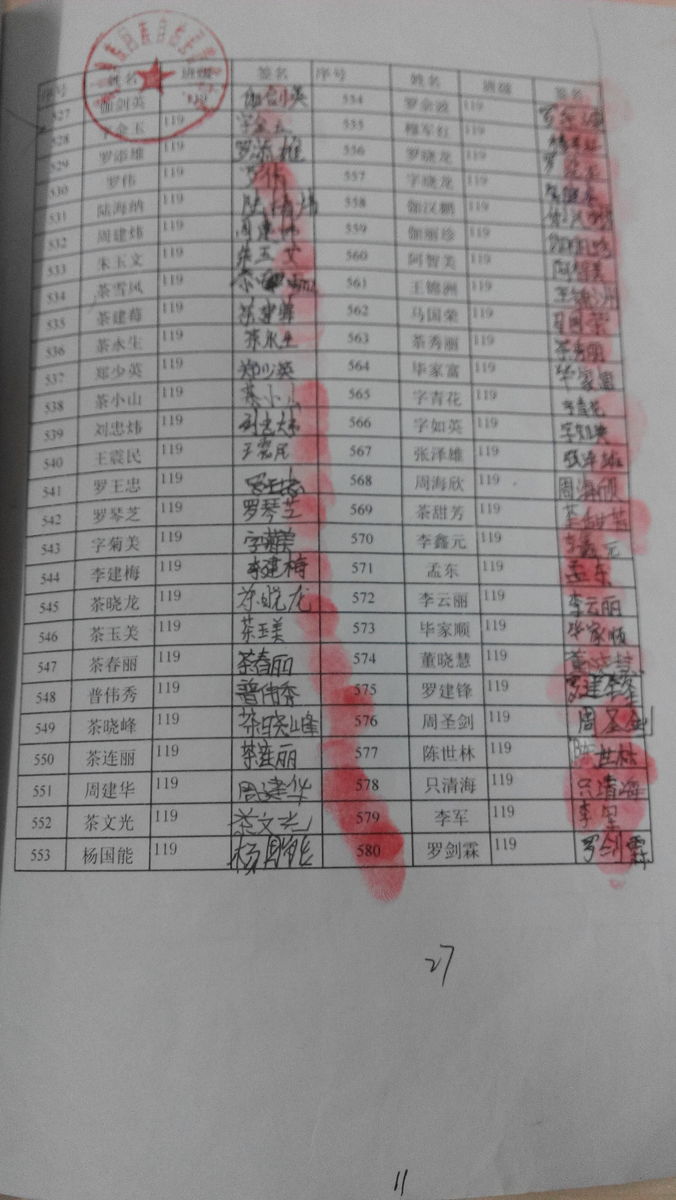 序号 姓名 班级 签名 序号 姓名 班级 签名
527 伽剑英 119 伽剑英 554 罗余波 119
528 字金玉 119 字金玉 555 穆军红 119
529 罗添雄 119 罗添雄 556 罗晓龙 119
530 罗伟 119 罗伟 557 字晓龙 119
531 陆海纳 119 558 伽汉鹏 119
532 周建炜 119 周建炜 559 伽丽珍 119 伽丽珍
533 朱玉文 119 朱玉文 560 阿智美 119 阿智美
534 茶雪凤 119 561 王锦洲 119 王锦洲
535 茶建莓 119 茶建莓 562 马国荣 119 马国荣
536 茶永生 119 茶永生 563 茶秀丽 119 茶秀丽
537 郑少英 119 郑少英 564 毕家富 119 毕家富
538 茶小山 119 茶小山 565 字青花 119 字青花
539 刘忠炜 119 刘忠炜 566 字如英 119 字如英
540 王震民 119 王震民 567 张泽雄 119 张泽雄
541 罗王忠 119 568 周海欣 119 周海欣
542 罗琴芝 119 罗琴芝 569 茶甜芳 119 茶甜芳
543 字菊美 119 字菊美 570 李鑫元 119 李鑫元
544 李建梅 119 李建梅 571 孟东 119 孟东
545 茶晓龙 119 茶晓龙 572 李云丽 119 李云丽
546 茶玉美 119 茶玉美 573 毕家顺 119 毕家顺
547 茶春丽 119 茶春丽 574 董晓慧 119 董晓慧
548 普伟秀 119 普伟秀 575 罗建锋 119 罗建锋
549 茶晓峰 119 茶晓峰 576 周圣剑 119 周圣剑
550 茶连丽 119 茶连丽 577 陈世林 119 陈世林
551 周建华 119 周建华 578 只清海 119 只清海
552 茶文光 119 茶文光 579 李军 119 李军
553 杨国能 119 杨国能 580 罗剑霖 119 罗剑霖
27
11